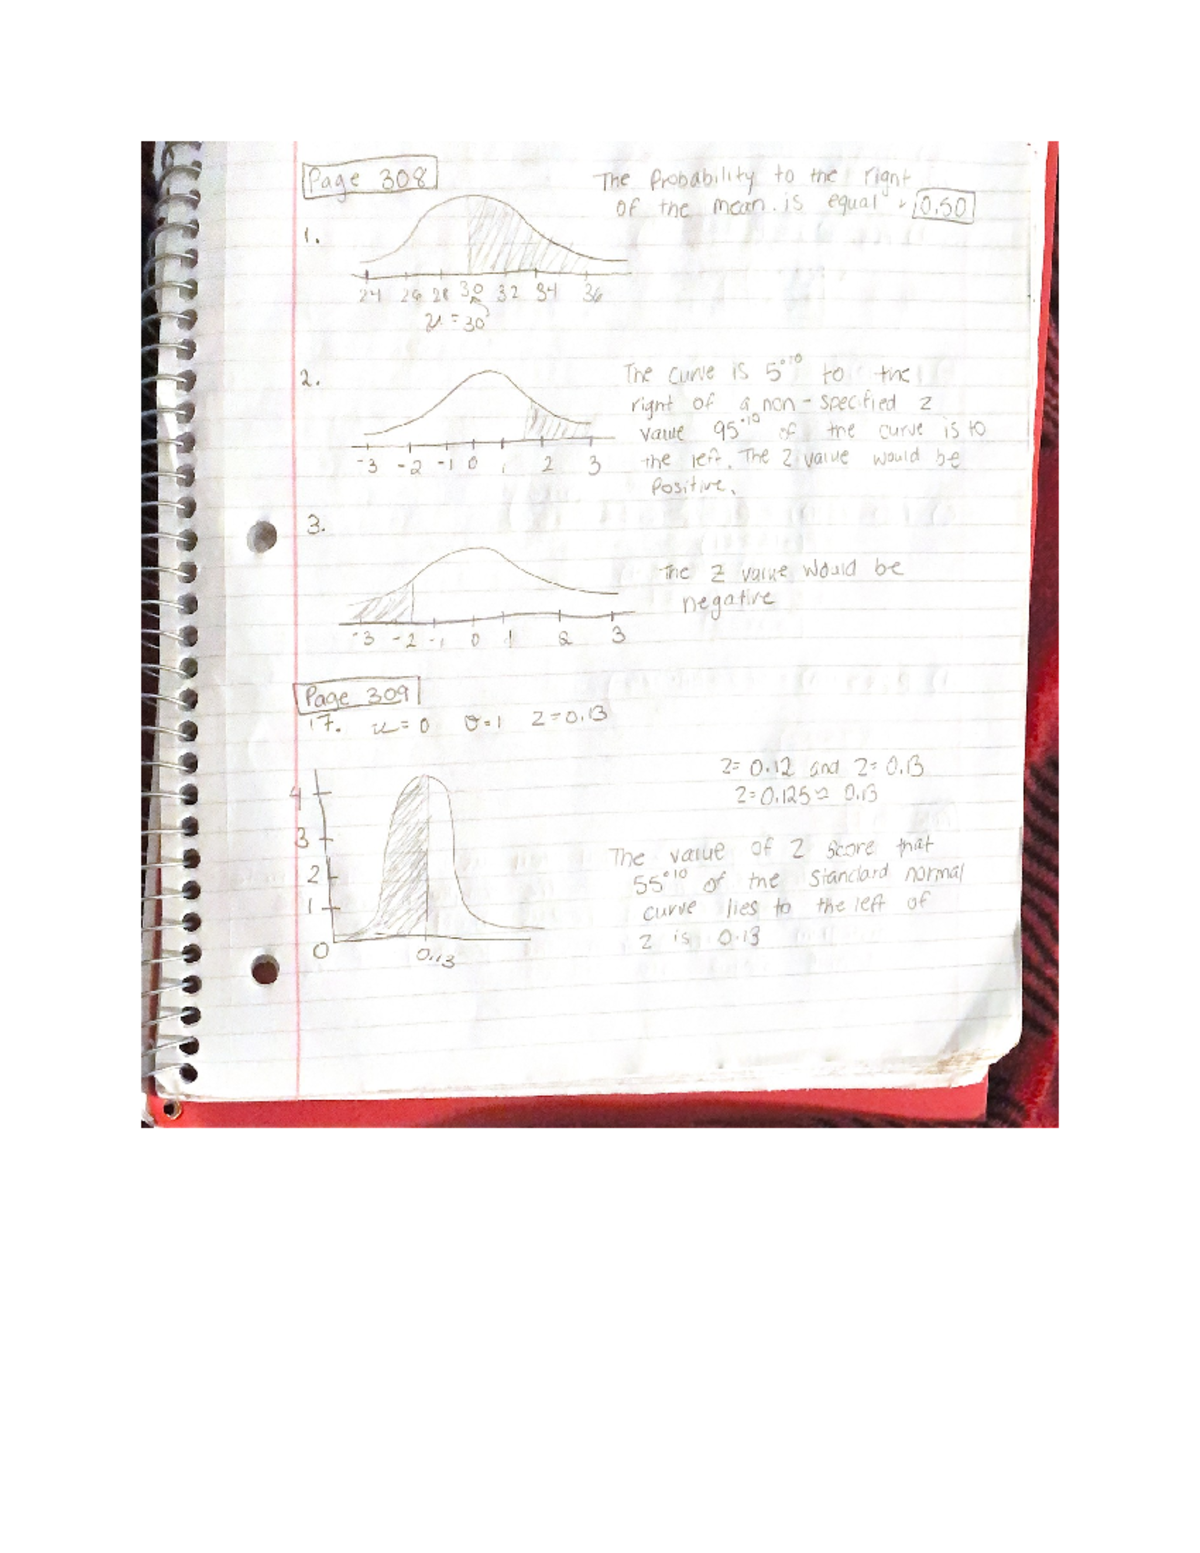 Page 308
The Probability to the right
of the mean. is equal 0.50
1.
24 26 28 30 32 34 36
u = 30
2.
The curve is 5% to the
right of a non-specified z
value 95% of the curve is to
the left. The z value would be
Positive.
-3 -2 -1 0 1 2 3
3.
The z value would be
negative
-3 -2 -1 0 1 2 3
Page 309
17. u = 0 σ = 1 z = 0.13
z= 0.12 and z= 0.13
z=0.125 ≈ 0.13
4
3
2
1
0
0.13
The value of z score that
55% of the standard normal
curve lies to the left of
z is 0.13